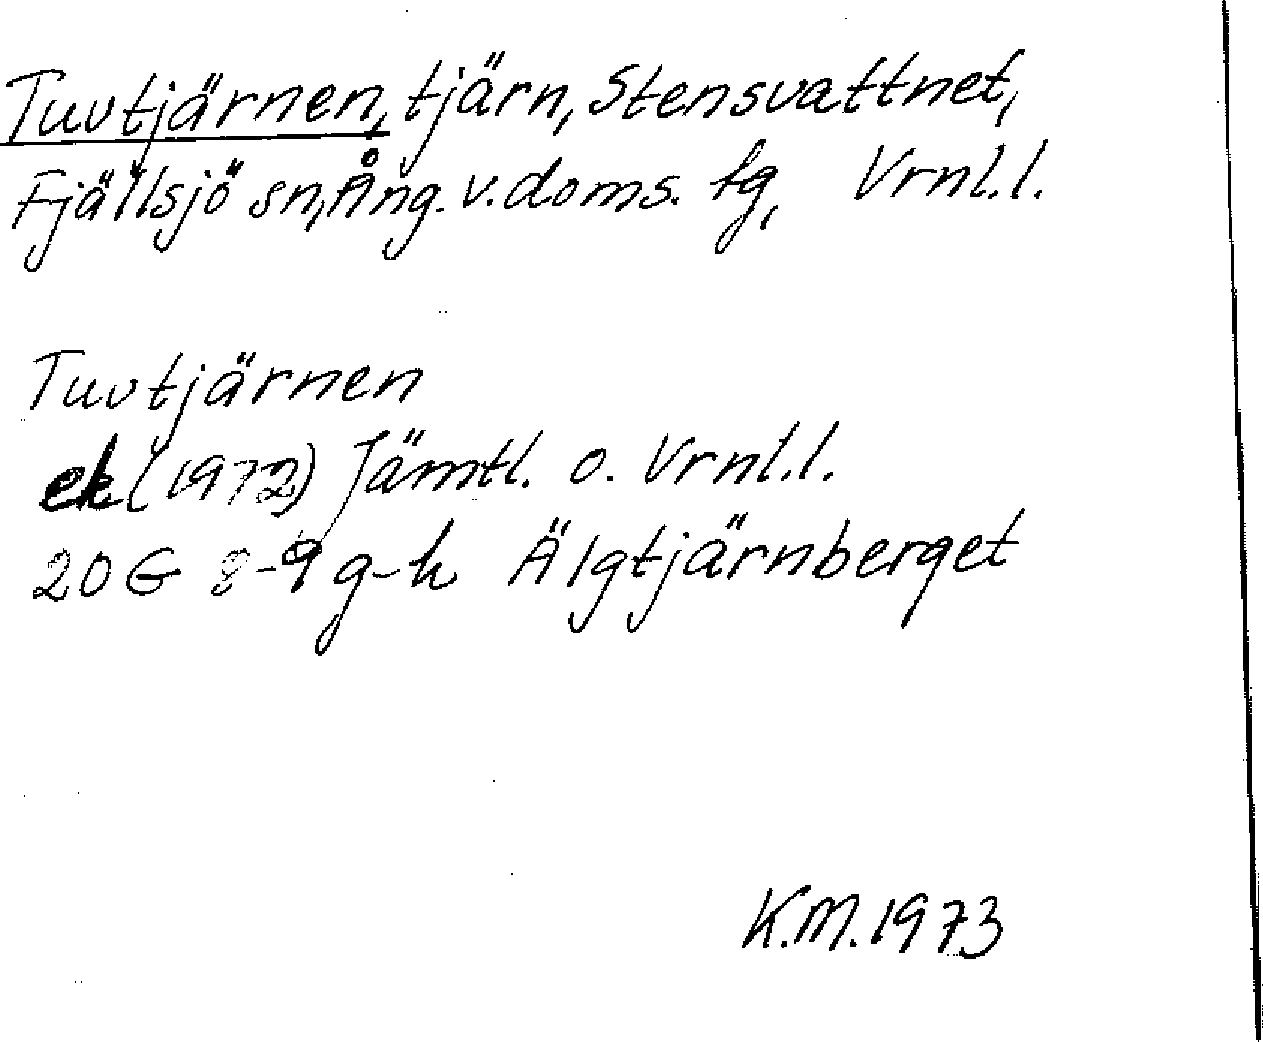 Tuvtjärnen, tjärn, Stensvattnet,
Fjällsjö sn, Ång. v. doms. tg, Vrnl.l.
Tuvtjärnen
ek (1972) Jämtl. o. Vrnl.l.
20 G 8-9 g-h Älgtjärnberget
K.M. 1973